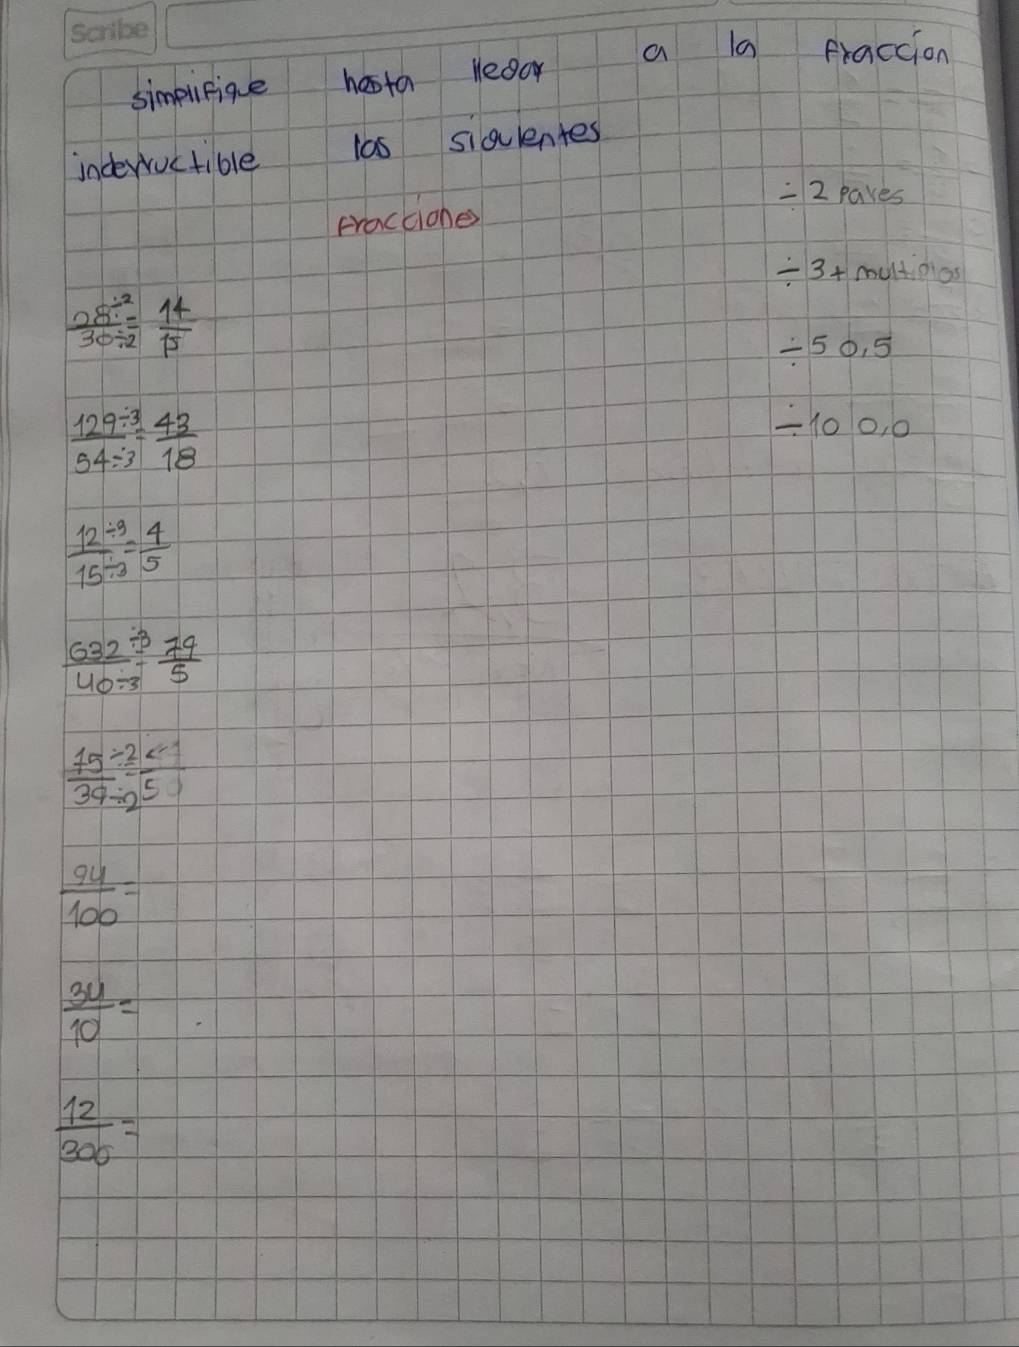 Scribe
simplifique hasta llegar a la fracción
inderructible las siguientes
fracciones
÷2 pares
÷3 + multiplos
28÷2 / 30÷2 = 14/15
÷5 0,5
129÷3 / 54÷3 = 43/18
÷10 0,0
12÷3 / 15÷3 = 4/5
632÷3 / 40÷3 = 79/5
75÷2 / 39÷2 = 5
94/100 =
34/10 =
12/306 =